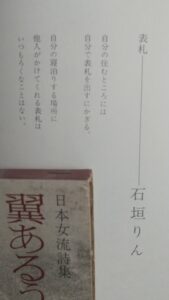 表札――石垣りん
自分の住むところには
自分で表札を出すにかぎる。
自分の寝泊りする場所に
他人がかけてくれる表札は
いつもろくなことはない。
日本女流詩集
翼ある